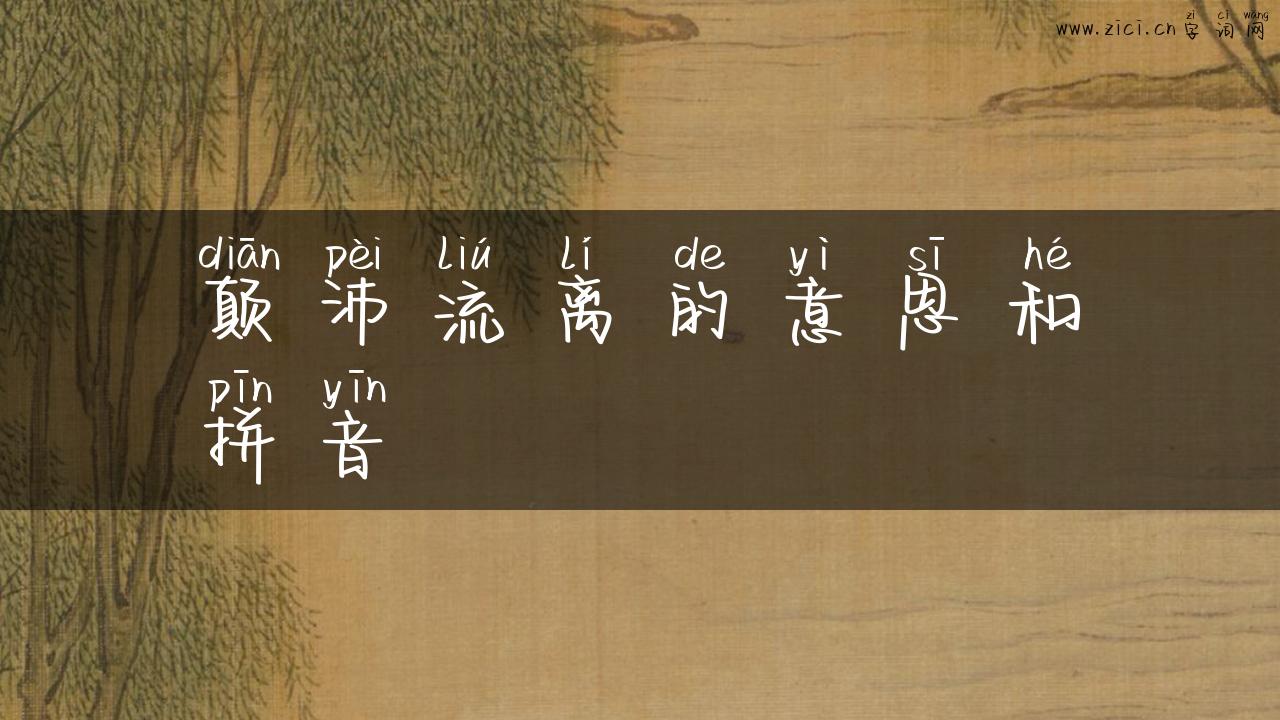 zì cí wǎng
www.zici.cn 字词网
diān pèi liú lí de yì sī hé
颠沛流离的意思和
pīn yīn
拼音